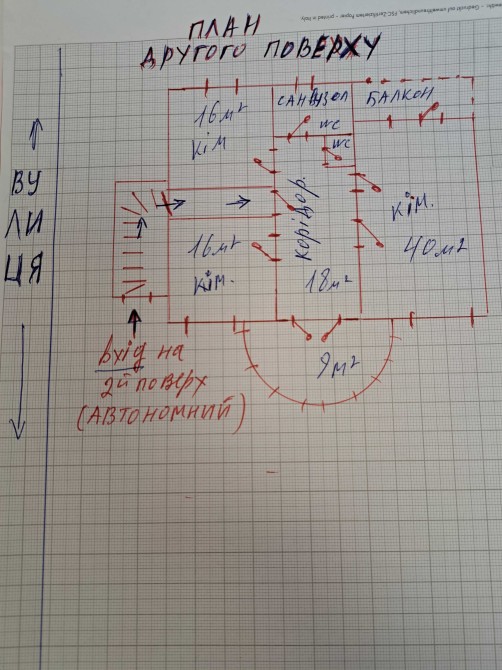 ПЛАН
ДРУГОГО ПОВЕРХУ
16м²
кім
САН ВУЗОЛ
WC
WC
БАЛКОН
ВУ
ЛИ
ЦЯ
корідор.
кім.
40м²
16м²
кім.
18м²
9м²
вхід на
2й поверх
(АВТОНОМНИЙ)